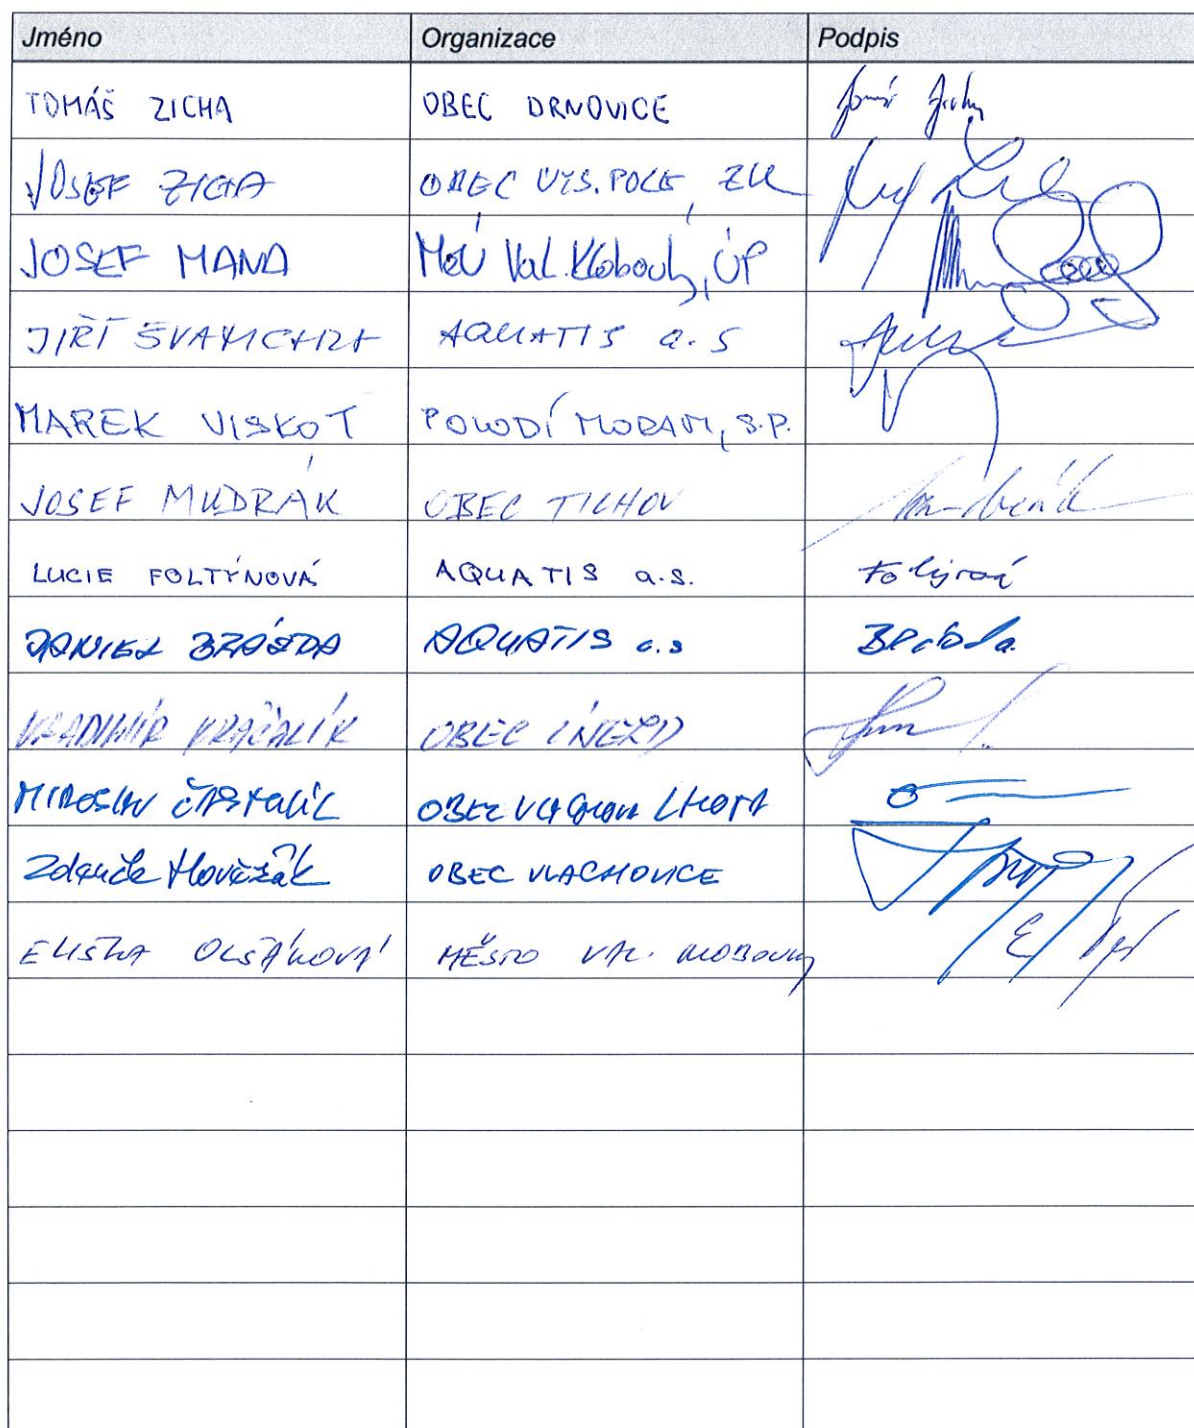 Jméno Organizace Podpis
TOMÁŠ ZICHA OBEC DRNOVICE
JOSEF ZICHA OBEC VYS. POLE, ZK
JOSEF MANA MěÚ Val. Klobouky, ÚP
JIŘÍ ŠVANCARA AQUATIS a.s
MAREK VISKOT POVODÍ MORAVY, S.P.
JOSEF MUDRÁK OBEC TICHOV
LUCIE FOLTÝNOVÁ AQUATIS a.s. Foltýnová
DANIEL BRÁZDA AQUATIS a.s Brázda
VLADIMÍR KRAČALÍK OBEC
MIROSLAV OBEC VLACHOVA LHOTA
Zdeněk Hověžák OBEC VLACHOVICE
ELIŠKA OLŠÁKOVÁ MĚSTO VAL. KLOBOUKY